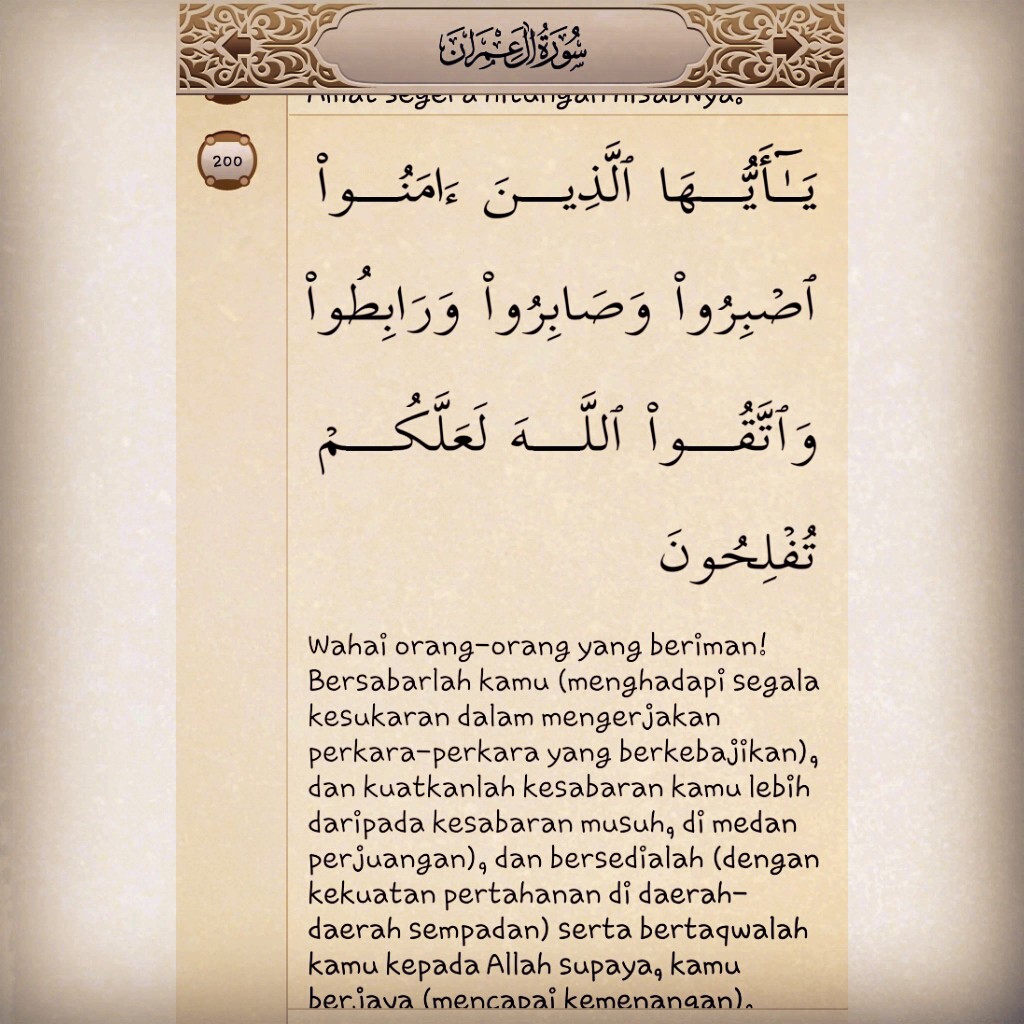 سُورَةُ آلِ عِمْرَانَ
Amat segera hitungan hisabNya.
200
يَـٰٓأَيُّهَا ٱلَّذِينَ ءَامَنُوا۟
ٱصْبِرُوا۟ وَصَابِرُوا۟ وَرَابِطُوا۟
وَٱتَّقُوا۟ ٱللَّهَ لَعَلَّكُمْ
تُفْلِحُونَ
Wahai orang-orang yang beriman!
Bersabarlah kamu (menghadapi segala
kesukaran dalam mengerjakan
perkara-perkara yang berkebajikan),
dan kuatkanlah kesabaran kamu lebih
daripada kesabaran musuh, di medan
perjuangan), dan bersedialah (dengan
kekuatan pertahanan di daerah-
daerah sempadan) serta bertaqwalah
kamu kepada Allah supaya, kamu
berjaya (mencapai kemenangan).